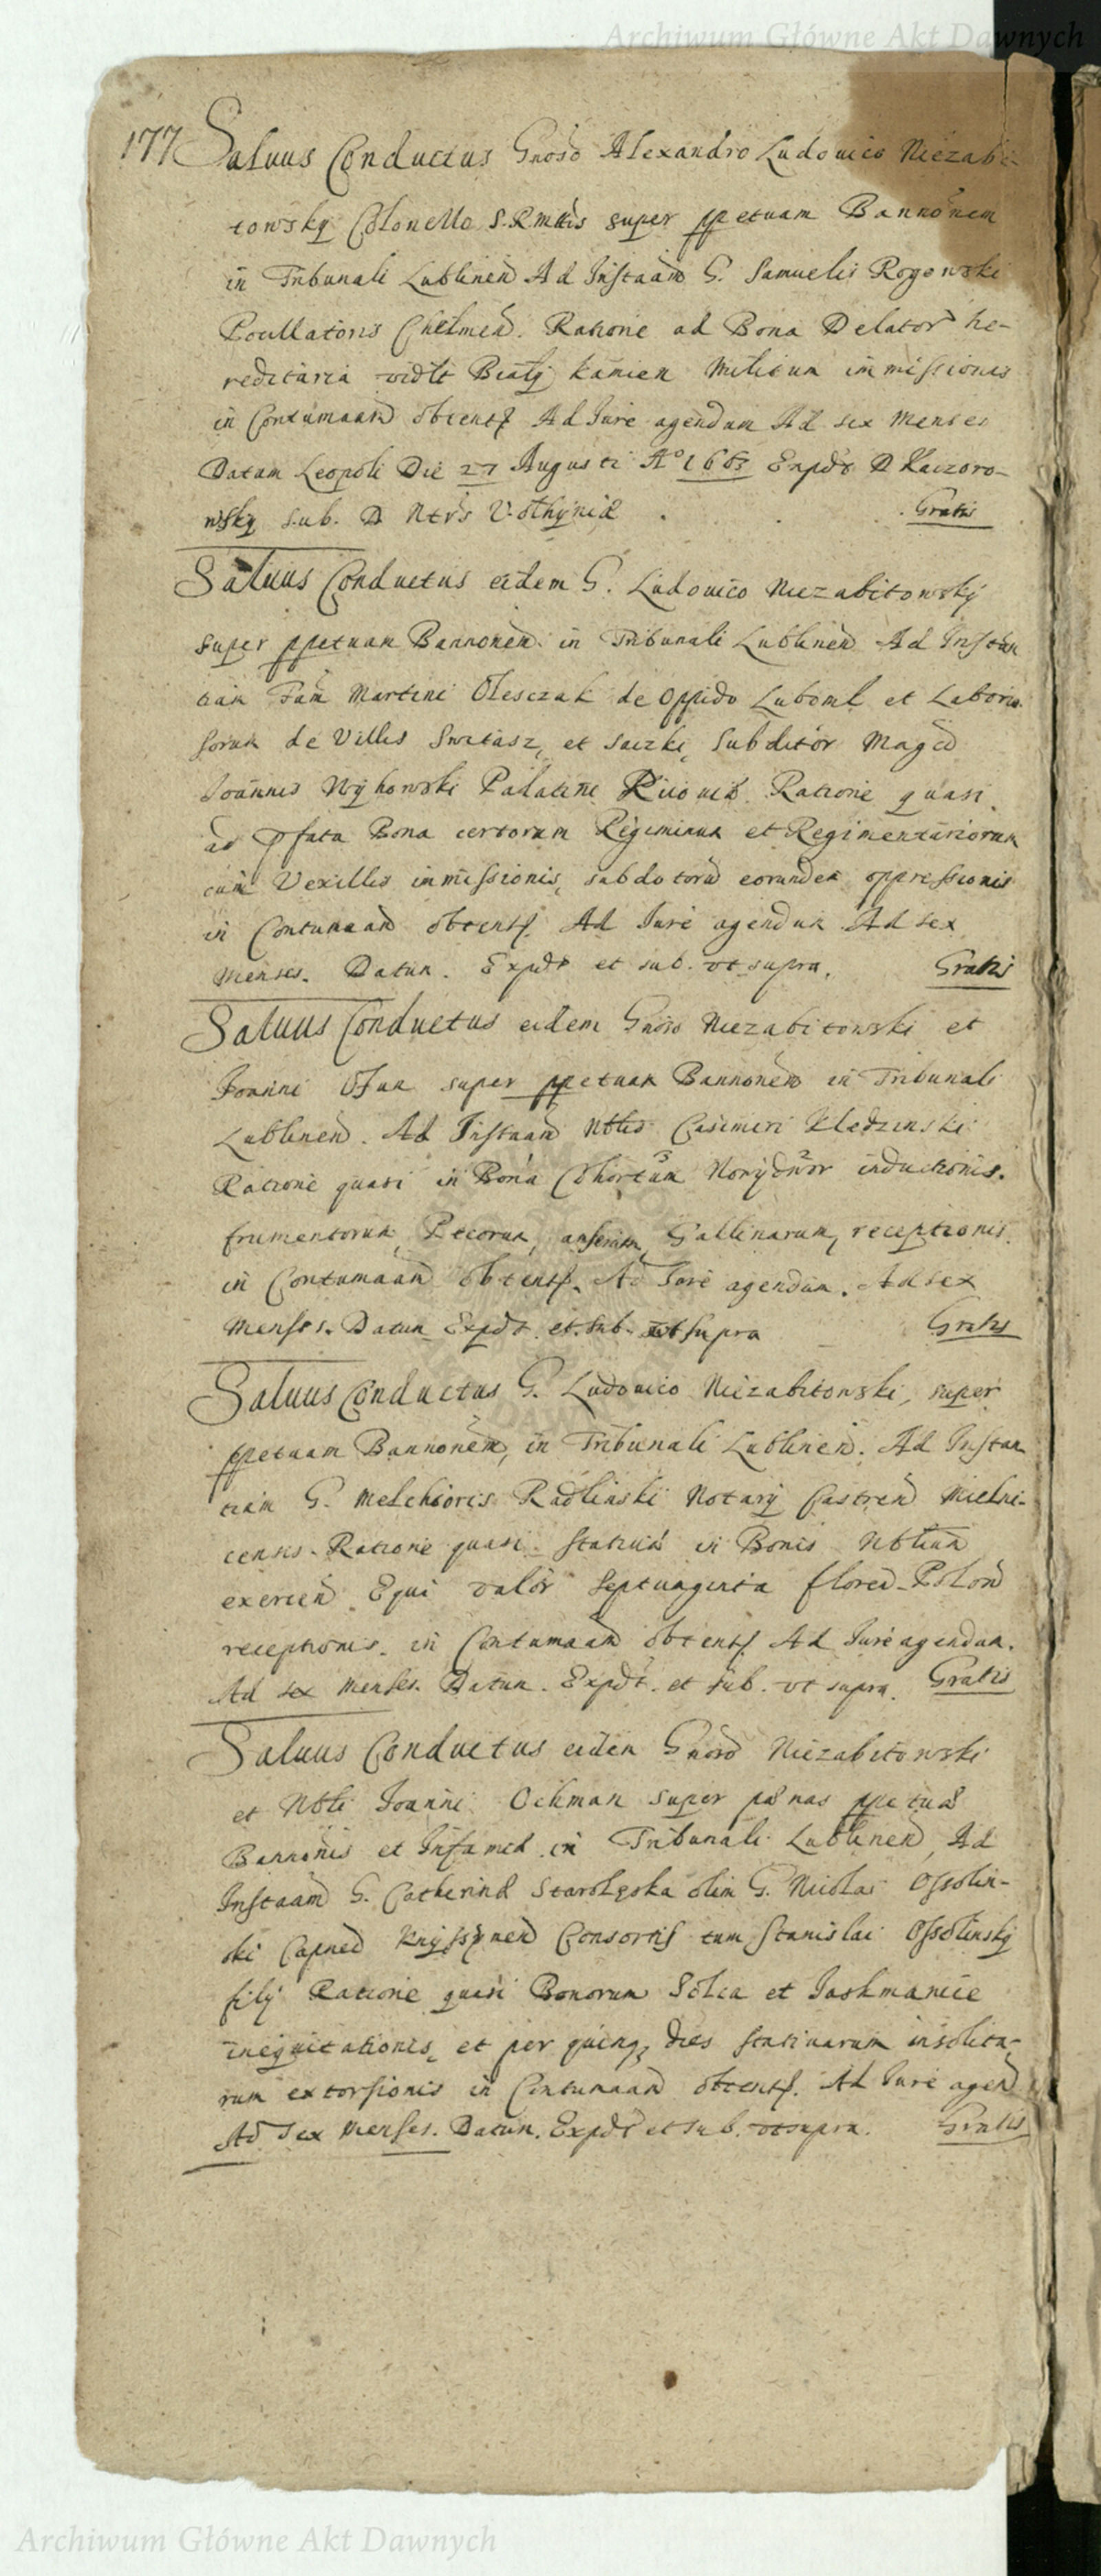 Archiwum Główne Akt Dawnych
177 Saluus Conductus Gnoso Alexandro Ludouico Niezabi-
towsky Colonello S.R.mttis super ppetuam Bannonem
in Tribunali Lublinen Ad Instaam G. Samuelis Rogowski
Pocillatoris Chelmen. Ratione ad Bona Delator he-
reditaria vidlt Biały kamien Militum immissiones
in Contumaam obtent Ad Iure agendum Ad sex Menses
Datum Leopoli Die 27 Augusti Aº 1663 Expdt D Kaczoro-
wsky sub. D Ntrs Volhyniæ Gratis
Saluus Conductus eidem G. Ludouico Niezabitowsky
super ppetuam Bannonem in Tribunali Lublinen Ad Instan
tiam Fam Martini Olesczak de Oppido Luboml et Laborio-
sorum de Villis Switasz, et Saczki, Subditor Magci
Joannis Wyhowski Palatini Kiiouien. Ratione quasi
ad pfata Bona certorum Regiminum et Regimentariorum
cum Vexillis immissionis, subditorum eorundem oppressionis
in Contumaam obtent. Ad Iure agendum Ad sex
Menses. Datum. Expdt et sub. vt supra. Gratis
Saluus Conductus eidem Gnoso Niezabitowski et
Joanni super ppetuam Bannonem in Tribunali
Lublinen. Ad Instaam Nblis Casimiri Kledzinski
Ratione quasi in Bona Cohortum inductionis.
frumentorum, Pecorum, anserum, Gallinarum, receptionis
in Contumaam obtent. Ad Iure agendum. Ad sex
Menses. Datum Expdt et. sub. vt supra Gratis
Saluus Conductus G. Ludouico Niezabitowski, super
ppetuam Bannonem, in Tribunali Lublinen. Ad Instan
tiam G. Melchioris Radlinski Notarij Castren Mielni-
censis. Ratione quasi Statiua in Bonis Nblium
exercen Equi valor septuaginta floren. Polon
receptionis. in Contumaam obtent Ad Iure agendum.
Ad sex Menses. Datum. Expdt. et sub. vt supra. Gratis
Saluus Conductus eidem Gnoso Niezabitowski
et Nbli Joanni Ochman super pænas ppetuæ
Bannonis et Infamiæ in Tribunali Lublinen, Ad
Instaam G. Catherinæ Starołęska olim G. Nicolai Ossolin-
ski Capnei Knyszynen Consortis tum Stanislai Ossolinsky
filij Ratione quasi Bonorum Solca et Iaskmanice
inequitationis, et per quinq, dies statiuarum insolita-
rum extorsionis in Contumaam obtent. Ad Iure agen
Ad Sex Menses. Datum. Expdt et sub. vt supra. Gratis
Archiwum Główne Akt Dawnych